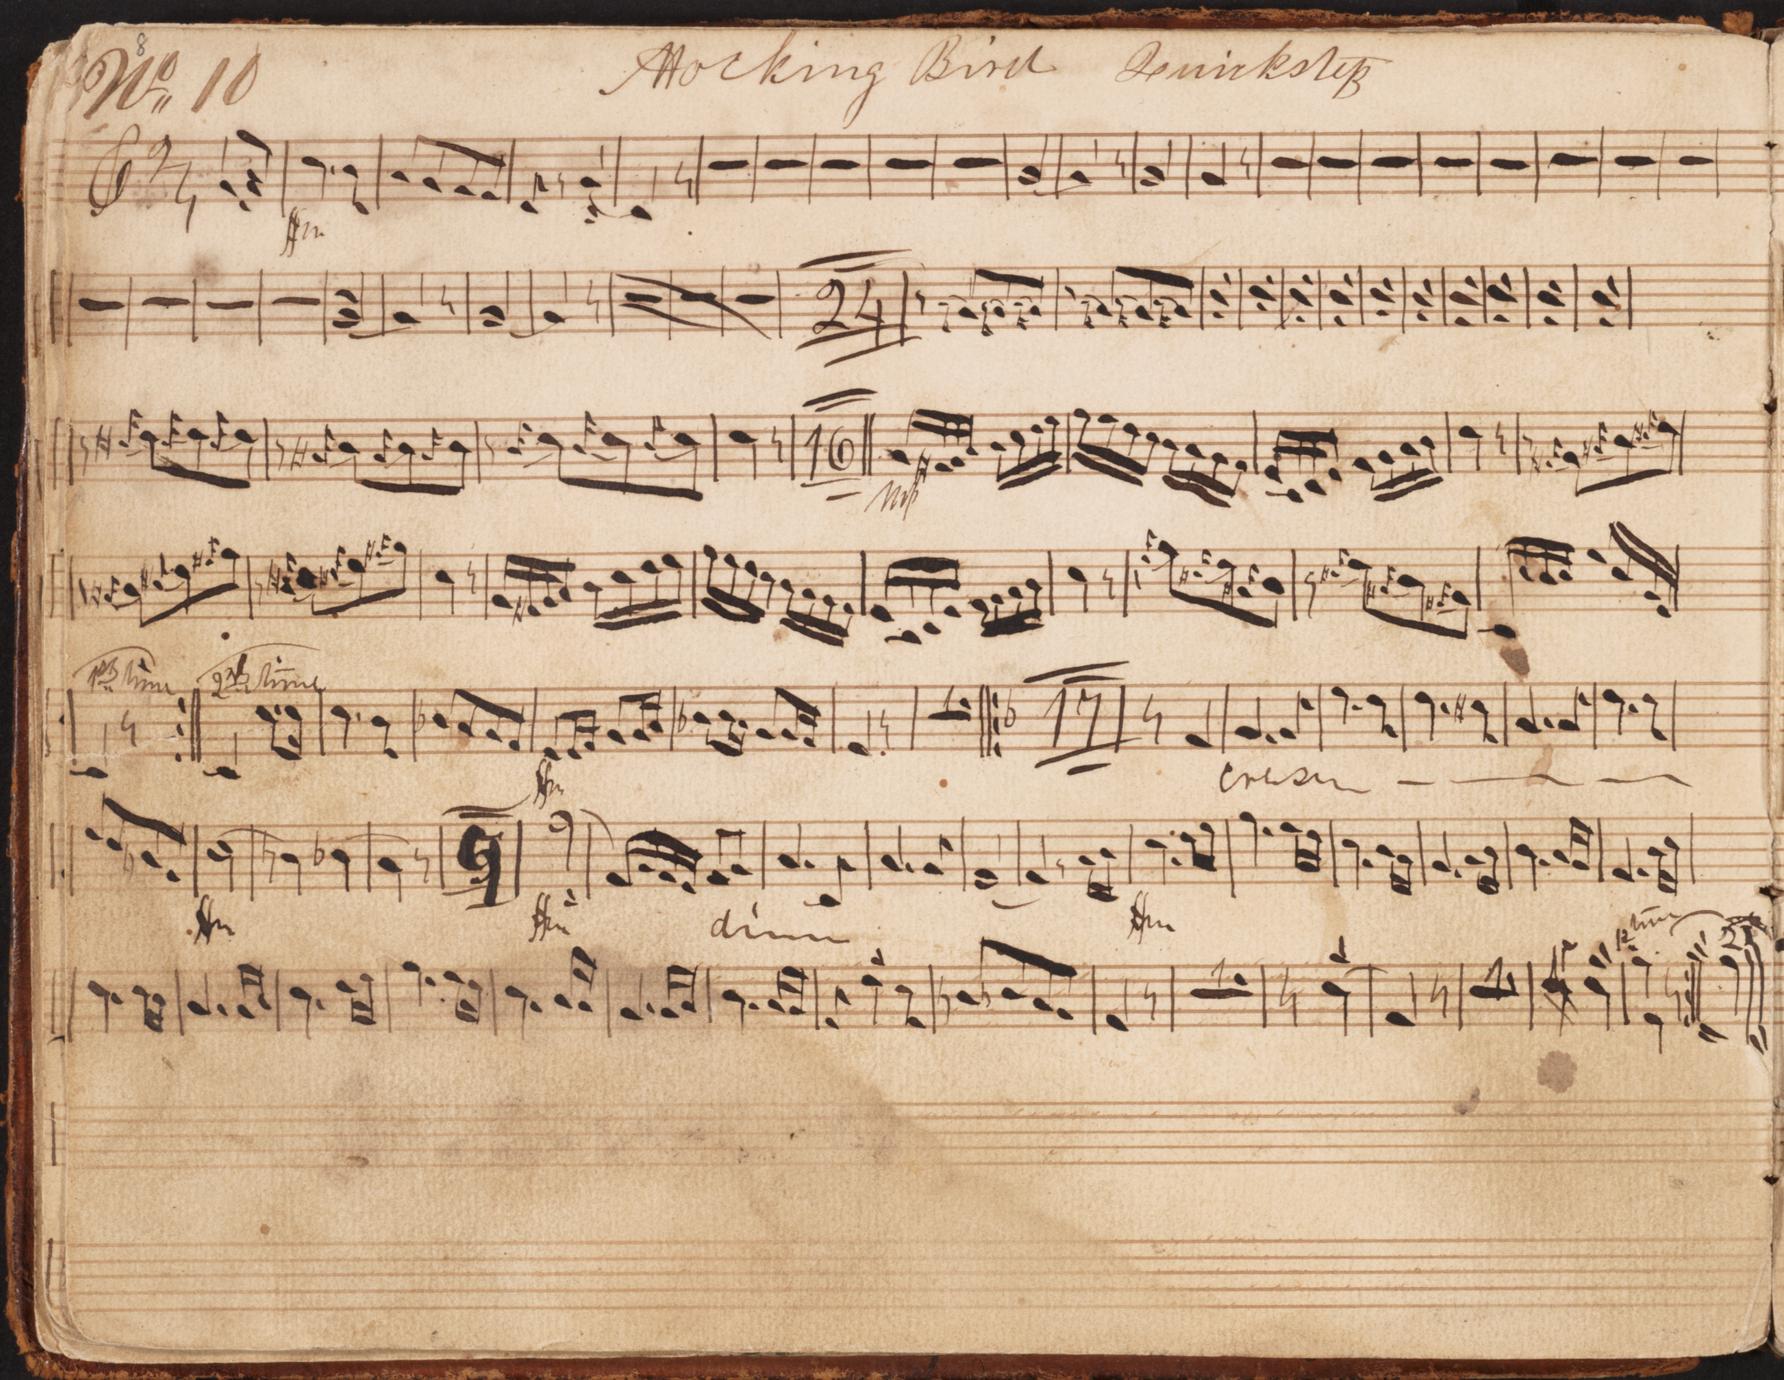 8
No. 10 Mocking Bird Quickstep
2/4
ffm
24
16
mf
1st time 2nd time
17
ffm
cresn
9
ffm ffm dim ffm
1st time 2
1 1